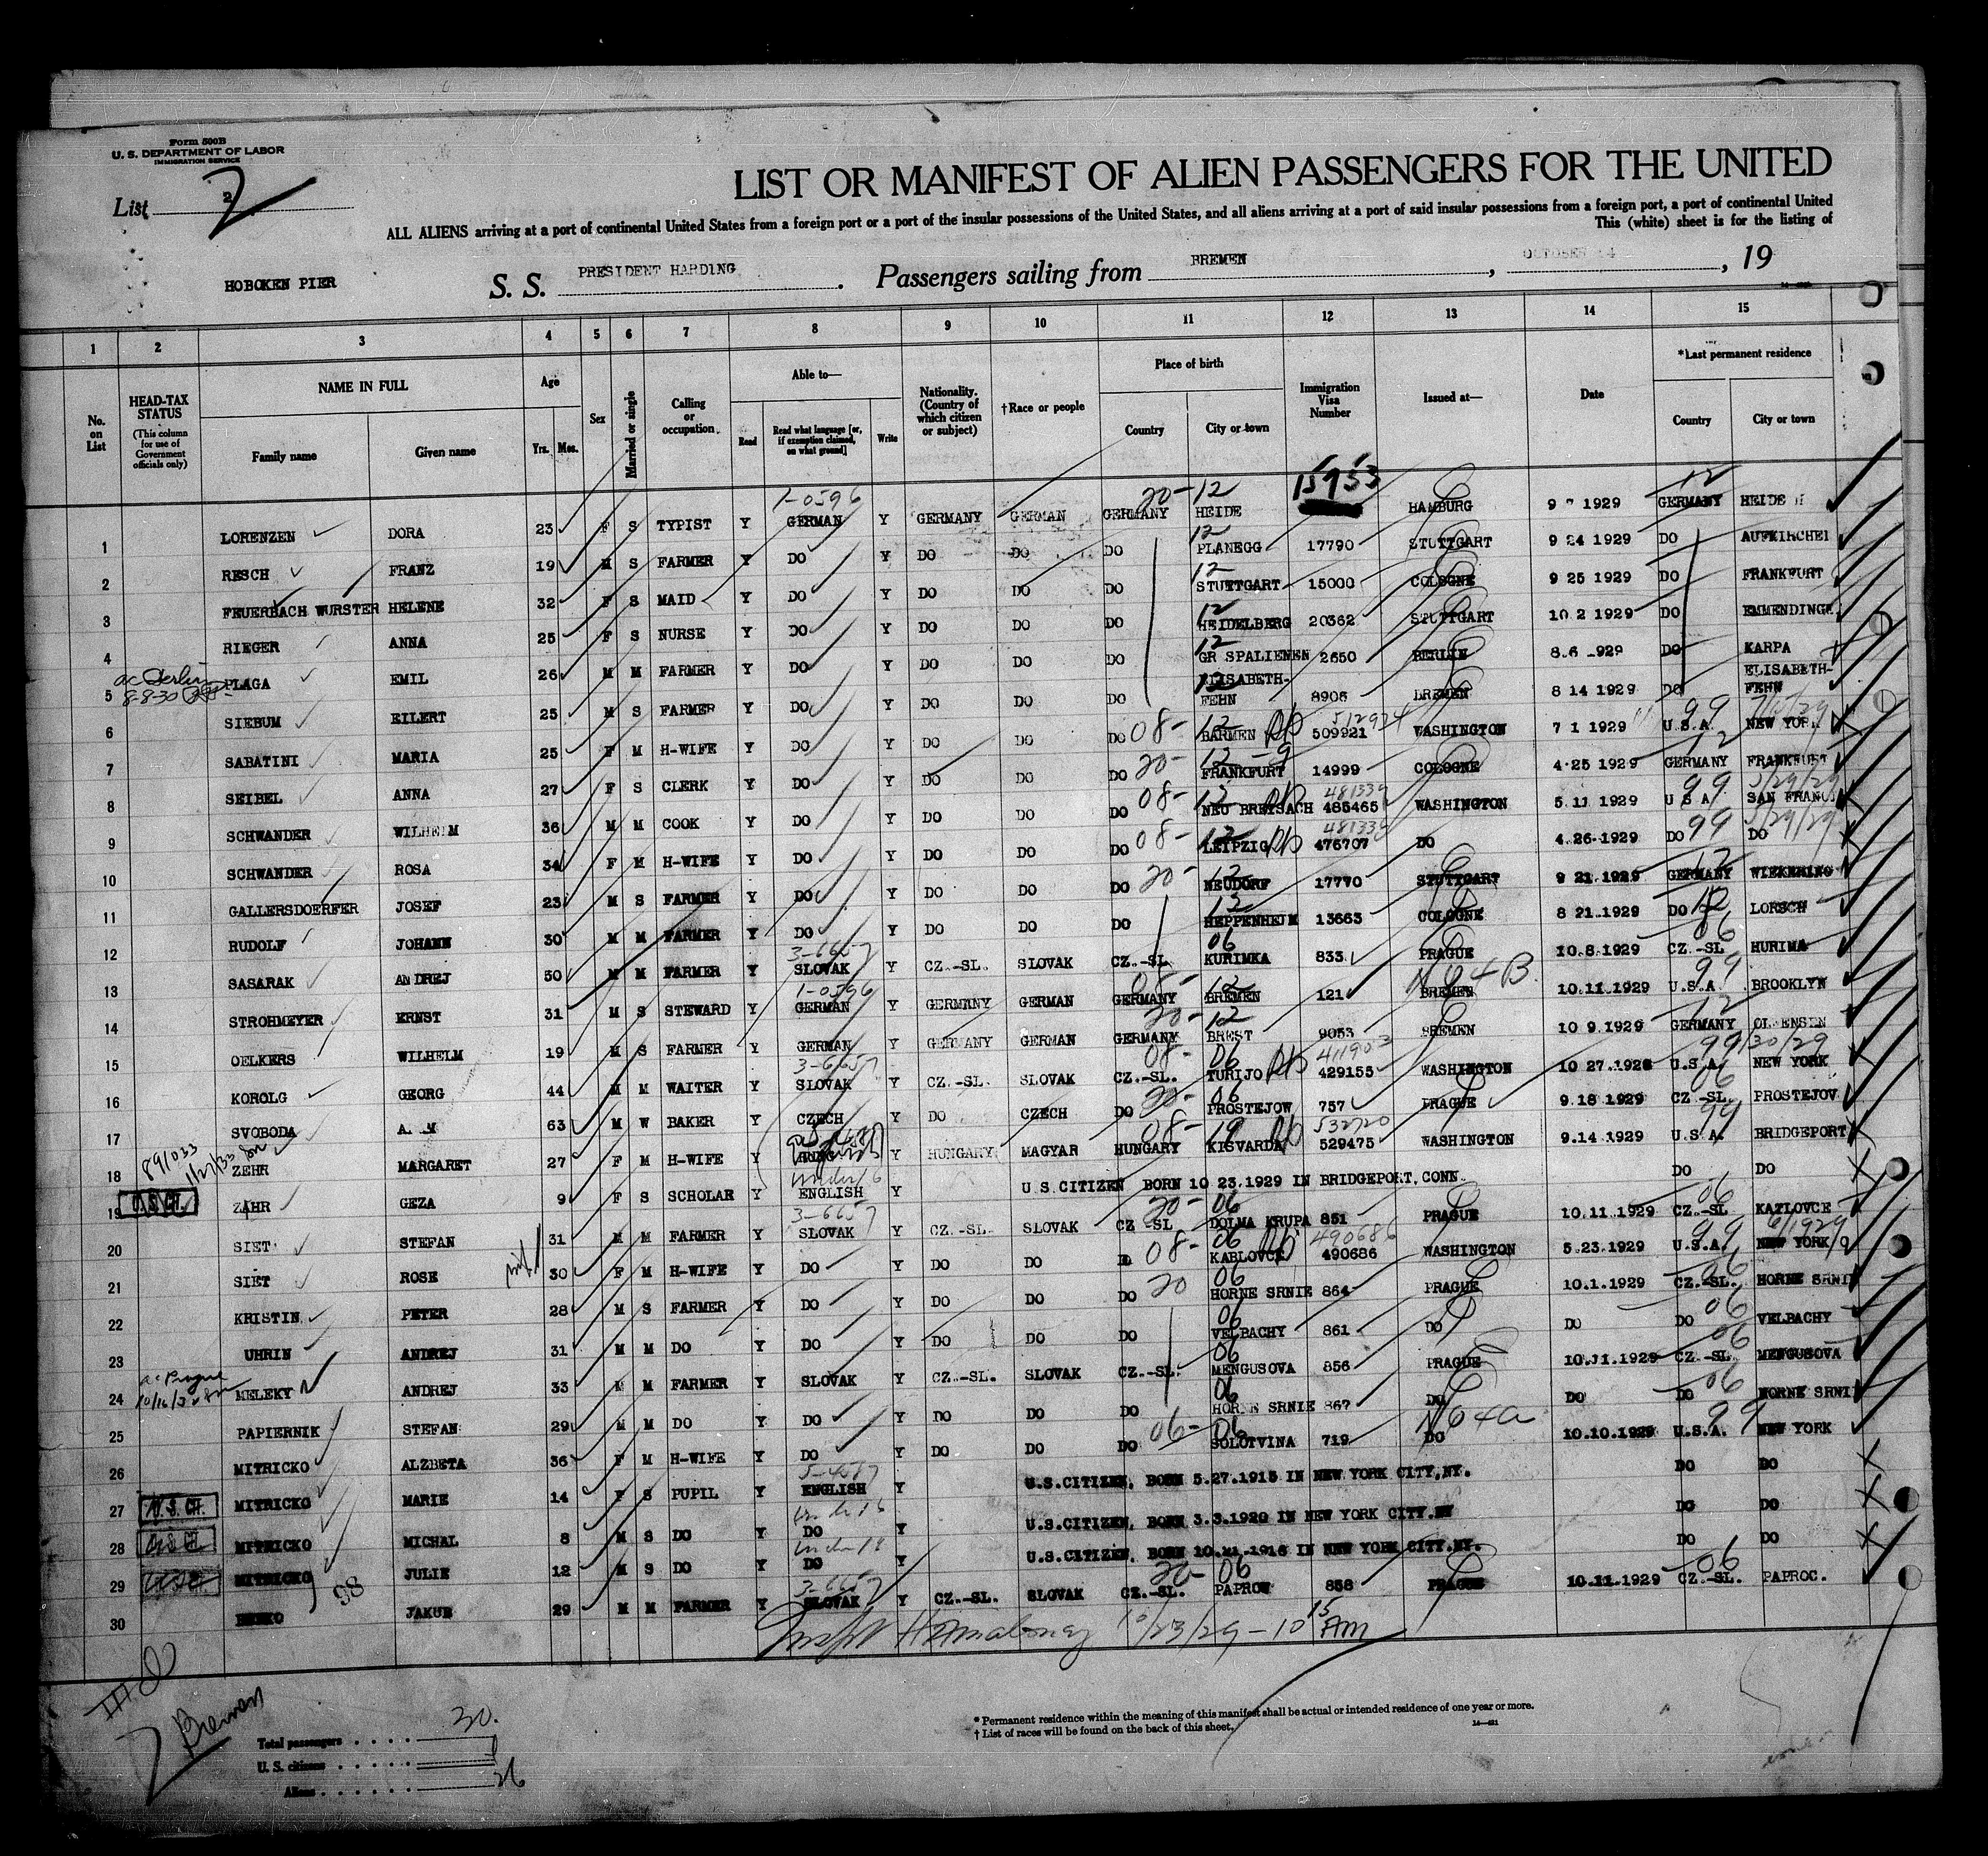 Form 500B
U. S. DEPARTMENT OF LABOR
IMMIGRATION SERVICE
List 2
LIST OR MANIFEST OF ALIEN PASSENGERS FOR THE UNITED
ALL ALIENS arriving at a port of continental United States from a foreign port or a port of the insular possessions of the United States, and all aliens arriving at a port of said insular possessions from a foreign port, a port of continental United
This (white) sheet is for the listing of
HOBOKEN PIER S. S. PRESIDENT HARDING. Passengers sailing from BREMEN, OCTOBER 14, 19
1 2 3 4 5 6 7 8 9 10 11 12 13 14 15
No. on List HEAD-TAX STATUS (This column for use of Government officials only) NAME IN FULL Family name Given name Age Yrs. Mos. Sex Married or single Calling or occupation Able to— Read Read what language [or, if exemption claimed, on what ground] Write Nationality. (Country of which citizen or subject) †Race or people Place of birth Country City or town Immigration Visa Number Issued at— Date *Last permanent residence Country City or town
1 LORENZEN DORA 23 F S TYPIST Y 1-0596 GERMAN Y GERMANY GERMAN GERMANY 20-12 HEIDE 15953 HAMBURG 9 7 1929 12 GERMANY HEIDE
2 RESCH FRANZ 19 M S FARMER Y DO Y DO DO DO 12 PLANEGG 17790 STUTTGART 9 24 1929 DO AUFKIRCHEI
3 FEUERBACH WURSTER HELENE 32 F S MAID Y DO Y DO DO DO 12 STUTTGART 15000 COLOGNE 9 25 1929 DO FRANKFURT
4 RIEGER ANNA 25 F S NURSE Y DO Y DO DO DO 12 HEIDELBERG 20362 STUTTGART 10 2 1929 DO EMMENDINGE
5 ac Berlin 8-8-30 PLAGA EMIL 26 M M FARMER Y DO Y DO DO DO 12 GR SPALIENEN 2650 BERLIN 8.6 .929 DO KARPA
6 SIEBUM EILERT 25 M S FARMER Y DO Y DO DO DO 12 ELISABETH-FEHN 8905 BREMEN 8 14 1929 DO ELISABETH-FEHN
7 SABATINI MARIA 25 F M H-WIFE Y DO Y DO DO DO 08-12 BARMEN 512924 509921 WASHINGTON 7 1 1929 99 U.S.A. NEW YORK
8 SEIBEL ANNA 27 F S CLERK Y DO Y DO DO DO 20-12 FRANKFURT 14999 COLOGNE 4.25 1929 12 GERMANY FRANKFURT
9 SCHWANDER WILHELM 36 M M COOK Y DO Y DO DO DO 08-12 NEU BREISACH 485465 WASHINGTON 5.11 1929 99 U S A SAN FRANC
10 SCHWANDER ROSA 34 F M H-WIFE Y DO Y DO DO DO 08-12 LEIPZIG 476707 DO 4.26.1929 DO 99 DO
11 GALLERSDOERFER JOSEF 23 M S FARMER Y DO Y DO DO DO 20-12 NEUDORF 17770 STUTTGART 9 21.1929 12 GERMANY
12 RUDOLF JOHANN 30 M M FARMER Y DO Y DO DO DO 12 HEPPENHEIM 13663 COLOGNE 8 21.1929 DO 12 LORSCH
13 SASARAK ANDREJ 50 M M FARMER Y 3-6657 SLOVAK Y CZ.-SL. SLOVAK CZ.-SL. 06 KURIMKA 833 PRAGUE 10.8.1929 06 CZ.-SL KURIMA
14 STROHMEYER ERNST 31 M S STEWARD Y 1-0596 GERMAN Y GERMANY GERMAN GERMANY 08-12 BREMEN 121 BREMEN N 04 B 10.11.1929 99 U.S.A BROOKLYN
15 OELKERS WILHELM 19 M S FARMER Y GERMAN Y GERMANY GERMAN GERMANY 20-12 BREST 9053 BREMEN 10 9.1929 12 GERMANY
16 KOROLG GEORG 44 M M WAITER Y 3-6657 SLOVAK Y CZ.-SL. SLOVAK CZ.-SL. 08-06 TURIJO 411903 429155 WASHINGTON 10 27.1928 99 U.S.A. NEW YORK
17 SVOBODA 63 M W BAKER Y CZECH Y DO CZECH DO 20-06 PROSTEJOW 757 PRAGUE 9.18 1929 06 CZ.-SL. PROSTEJOV
18 891033 11/27/33 ZEHR MARGARET 27 F M H-WIFE Y Y HUNGARY MAGYAR HUNGARY 08-19 KISVARDA 532720 529475 WASHINGTON 9.14 1929 99 U.S.A. BRIDGEPORT
19 U.S.CH. ZAHR GEZA 9 F S SCHOLAR Y under 16 ENGLISH Y U S CITIZEN BORN 10 23.1929 IN BRIDGEPORT, CONN. DO DO
20 SIET STEFAN 31 M M FARMER Y 3-6657 SLOVAK Y CZ.-SL. SLOVAK CZ SL 20-06 DOLMA KRUPA 851 PRAGUE 10.11.1929 06 CZ.-SL KAZLOVCE
21 SIET ROSE 30 F M H-WIFE Y DO Y DO DO 08-06 KABLOVCE 490686 490686 WASHINGTON 5.23.1929 99 U.S.A. NEW YORK
22 KRISTIN PETER 28 M S FARMER Y DO Y DO DO DO 20 06 HORNE SRNIE 864 PRAGUE 10.1.1929 06 CZ.-SL. HORNE SRNIE
23 UHRIN ANDREJ 31 M M DO Y DO Y DO DO DO 06 VELBACHY 861 DO DO DO 06 VELBACHY
24 ac Prague MELEKY ANDREJ 33 M M FARMER Y SLOVAK Y CZ.-SL. SLOVAK CZ.-SL. 06 MENGUSOVA 856 PRAGUE 10.11.1929 CZ.-SL. 06 MENGUSOVA
25 PAPIERNIK STEFAN 29 M M DO Y DO Y DO DO DO 06 HORNE SRNIE 867 DO DO DO 06 HORNE SRNI
26 MITRICKO ALZBETA 36 F M H-WIFE Y DO Y DO DO DO 06-06 SOLOTVINA 719 DO N 04a 10.10.1929 U.S.A. 99 NEW YORK
27 U.S.CH. MITRICKO MARIE 14 F S PUPIL Y ENGLISH Y U.S.CITIZEN, BORN 5.27.1915 IN NEW YORK CITY,NY. DO DO
28 U.S.CH. MITRICKO MICHAL 8 M S DO Y under 16 DO Y U.S.CITIZEN, BORN 3.3.1920 IN NEW YORK CITY.NY DO DO
29 MITRICKO JULIE 12 M S DO Y DO Y U.S.CITIZEN, BORN 10.21.1916 IN NEW YORK CITY.NY. DO DO
30 JAKUB 29 M M FARMER Y 3-6657 SLOVAK Y CZ.-SL. SLOVAK CZ.-SL. 20-06 PAPROW 858 PRAGUE 10.11.1929 CZ.-SL. 06 PAPROC.
98
10/23/29 - 10 15 AM
2 Bremen
Total passengers 30.
U. S. citizens
Aliens 26
* Permanent residence within the meaning of this manifest shall be actual or intended residence of one year or more.
† List of races will be found on the back of this sheet.